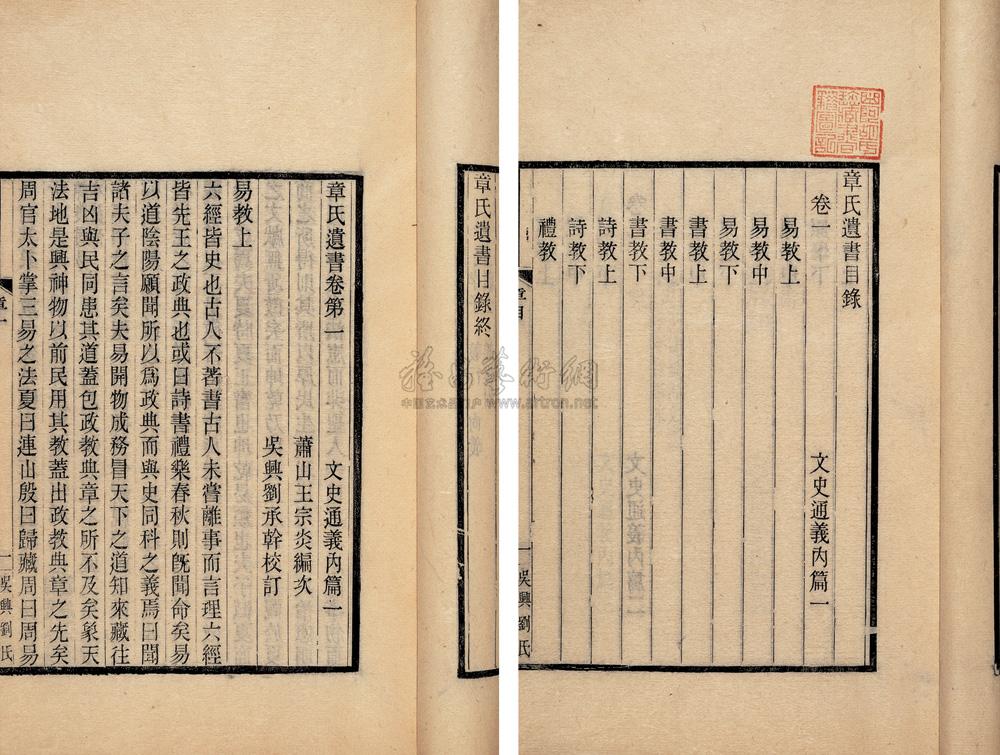 章氏遺書目錄
卷一　文史通義內篇一
易教上
易教中
易教下
書教上
書教中
書教下
詩教上
詩教下
禮教
一　吳興劉氏
章氏遺書目錄終
章氏遺書卷第一　文史通義內篇一
蕭山王宗炎編次
吳興劉承幹校訂
易教上
六經皆史也古人不著書古人未嘗離事而言理六經
皆先王之政典也或曰詩書禮樂春秋則旣聞命矣易
以道陰陽願聞所以爲政典而與史同科之義焉曰聞
諸夫子之言矣夫易開物成務冒天下之道知來藏往
吉凶與民同患其道蓋包政教典章之所不及矣象天
法地是興神物以前民用其教蓋出政教典章之先矣
周官太卜掌三易之法夏曰連山殷曰歸藏周曰周易
一　吳興劉氏
雅昌藝術網
www.artron.net